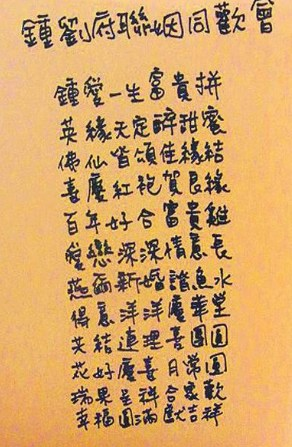 鍾劉府聯姻同歡會
鍾愛一生富貴拼
英緣天定醉甜蜜
佛仙皆頌佳緣結
喜慶紅袍賀良緣
百年好合富貴雞
愛戀深深情意長
燕爾新婚諧魚水
得意洋洋慶華堂
美結連理喜圓圓
花好慶喜月常圓
瑞果呈祥合家歡
幸福圓滿獻吉祥